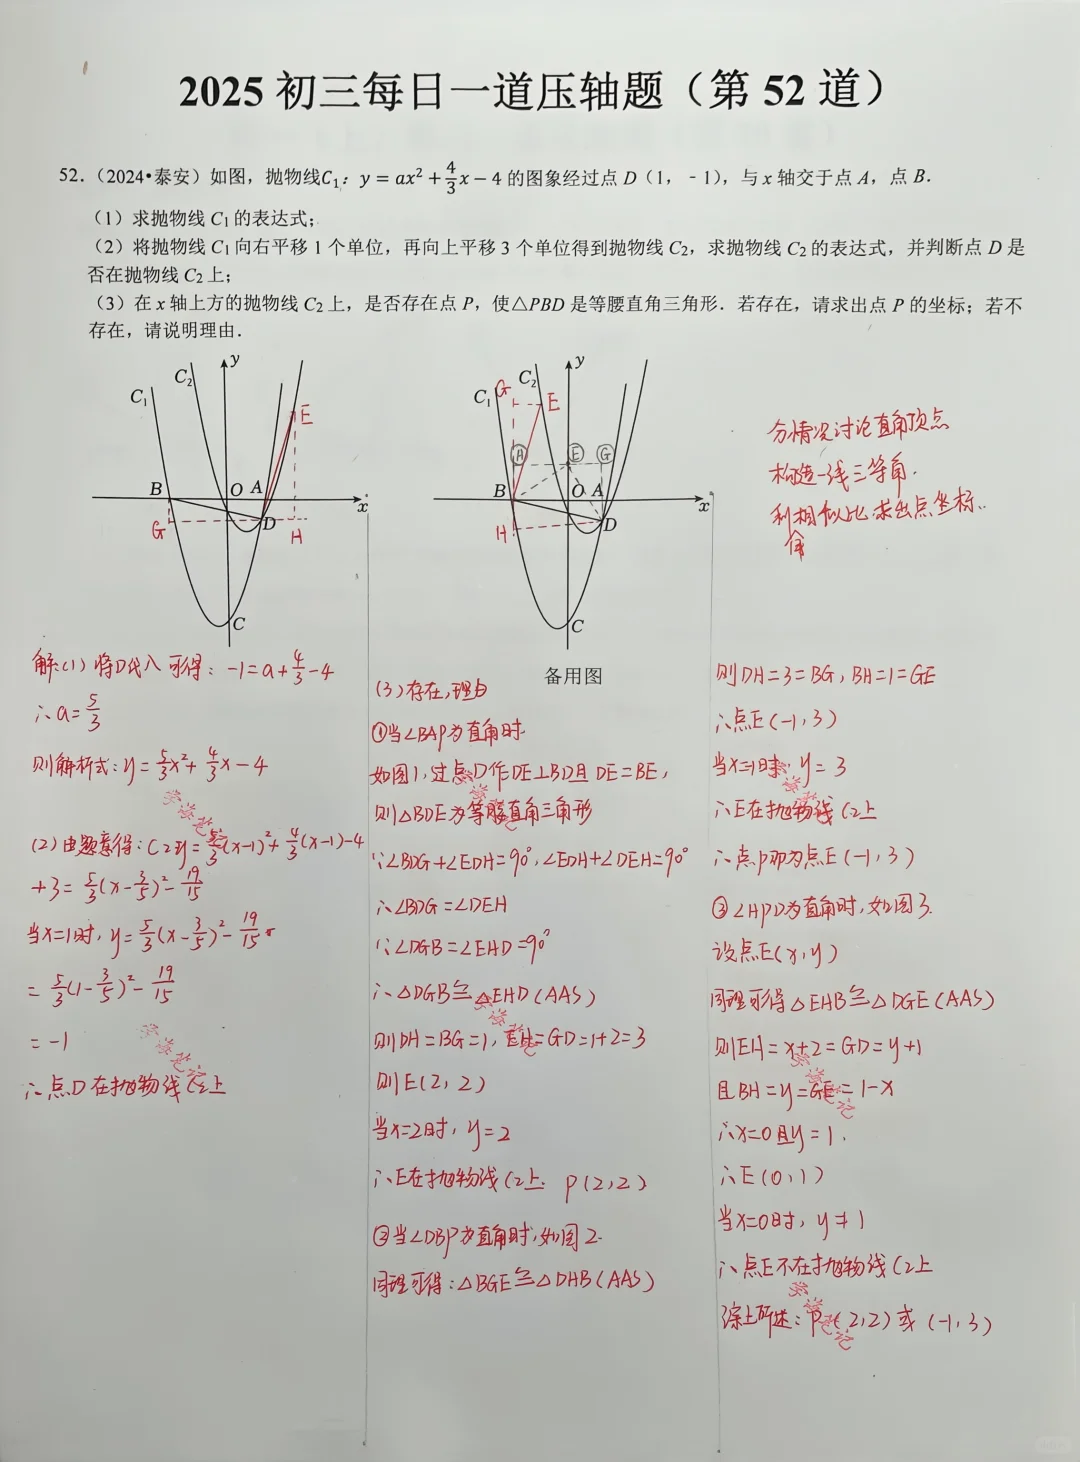 2025 初三每日一道压轴题（第 52 道）
52.（2024•泰安）如图，抛物线C₁：y = ax² + 4/3x − 4 的图象经过点 D（1，﹣1），与 x 轴交于点 A，点 B．
（1）求抛物线 C₁ 的表达式；
（2）将抛物线 C₁ 向右平移 1 个单位，再向上平移 3 个单位得到抛物线 C₂，求抛物线 C₂ 的表达式，并判断点 D 是
否在抛物线 C₂ 上；
（3）在 x 轴上方的抛物线 C₂ 上，是否存在点 P，使△PBD 是等腰直角三角形．若存在，请求出点 P 的坐标；若不
存在，请说明理由．
C₁ C₂ y E B O A x G D H C
C₁ G C₂ y E H E G B O A x H D C
备用图
分情况讨论直角顶点
构造一线三等角.
利用相似比求出点坐标..
解:(1) 将D代入可得: -1=a+4/3-4
∴a=5/3
则解析式: y=5/3x²+4/3x-4
(2) 由题意得: C2:y=5/3(x-1)²+4/3(x-1)-4
+3=5/3(x-3/5)²-19/15
当x=1时, y=5/3(x-3/5)²-19/15
=5/3(1-3/5)²-19/15
=-1
∴点D在抛物线C2上
(3) 存在,理由
①当∠BAP为直角时.
如图1,过点D作DE⊥BD且DE=BE,
则△BDE为等腰直角三角形
∵∠BDG+∠EDH=90°,∠EDH+∠DEH=90°
∴∠BDG=∠DEH
∵∠DGB=∠EHD=90°
∴△DGB≌△EHD(AAS)
则DH=BG=1, EH=GD=1+2=3
则E(2,2)
当x=2时, y=2
∴E在抛物线C2上. P(2,2)
②当∠DBP为直角时,如图2.
同理可得: △BGE≌△DHB(AAS)
则DH=3=BG, BH=1=GE
∴点E(-1,3)
当x=-1时, y=3
∴E在抛物线C2上
∴点P即为点E(-1,3)
③∠HPD为直角时,如图3.
设点E(x,y)
同理可得△EHB≌△DGE(AAS)
则EH=x+2=GD=y+1
且BH=y=GE=1-x
∴x=0且y=1.
∴E(0,1)
当x=0时, y≠1
∴点E不在抛物线C2上
综上所述: P(2,2)或(-1,3)
学海笔记
学海笔记
学海笔记
学海笔记
学海笔记
学海笔记
学海笔记